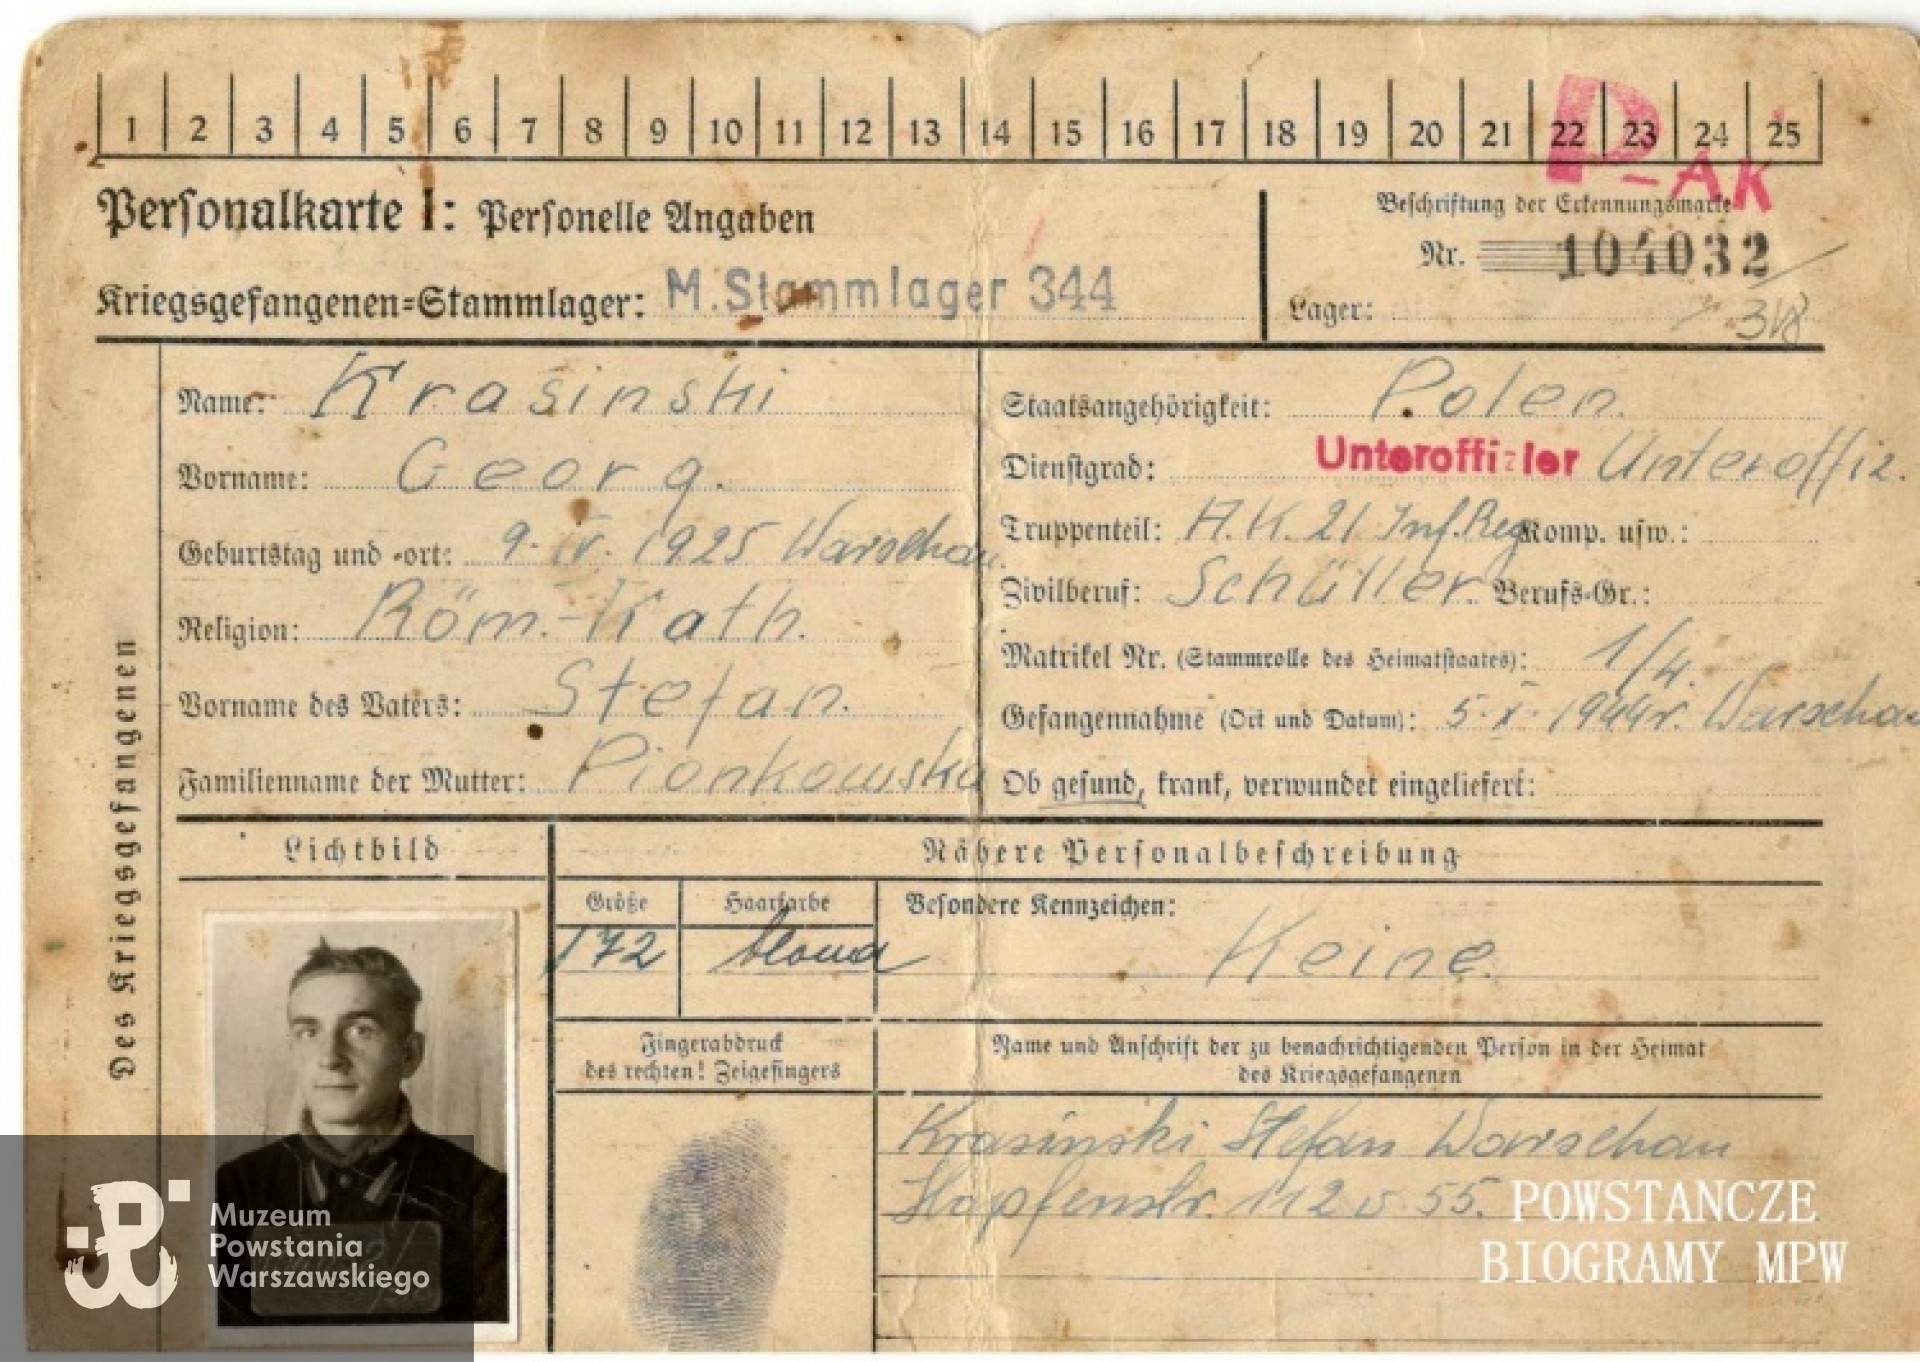 1 2 3 4 5 6 7 8 9 10 11 12 13 14 15 16 17 18 19 20 21 22 23 24 25
P-AK
Personalkarte I: Personelle Angaben
Beschriftung der Erkennungsmarke
Nr. 104032
Kriegsgefangenen-Stammlager: M.Stammlager 344
Lager: 318
Des Kriegsgefangenen
Name: Krasinski
Staatsangehörigkeit: Polen.
Vorname: Georg.
Dienstgrad: Unteroffizier Unteroffiz.
Geburtstag und -ort: 9. IV. 1925 Warschau.
Truppenteil: A.K. 21 Inf.Reg Komp. usw.:
Religion: Röm.-Kath.
Zivilberuf: Schüller. Berufs-Gr.:
Matrikel Nr. (Stammrolle des Heimatstaates): 1/4.
Vorname des Vaters: Stefan.
Gefangennahme (Ort und Datum): 5. X. 1944r. Warschau
Familienname der Mutter: Pionkowska
Ob gesund, krank, verwundet eingeliefert:
Lichtbild
Nähere Personalbeschreibung
Größe
Haarfarbe
Besondere Kennzeichen:
172
blond
Keine.
Fingerabdruck
des rechten! Zeigefingers
Name und Anschrift der zu benachrichtigenden Person in der Heimat
des Kriegsgefangenen
Krasinski Stefan Warschau
Hopfenstr. 112 55.
Muzeum
Powstania
Warszawskiego
POWSTAŃCZE
BIOGRAMY MPW